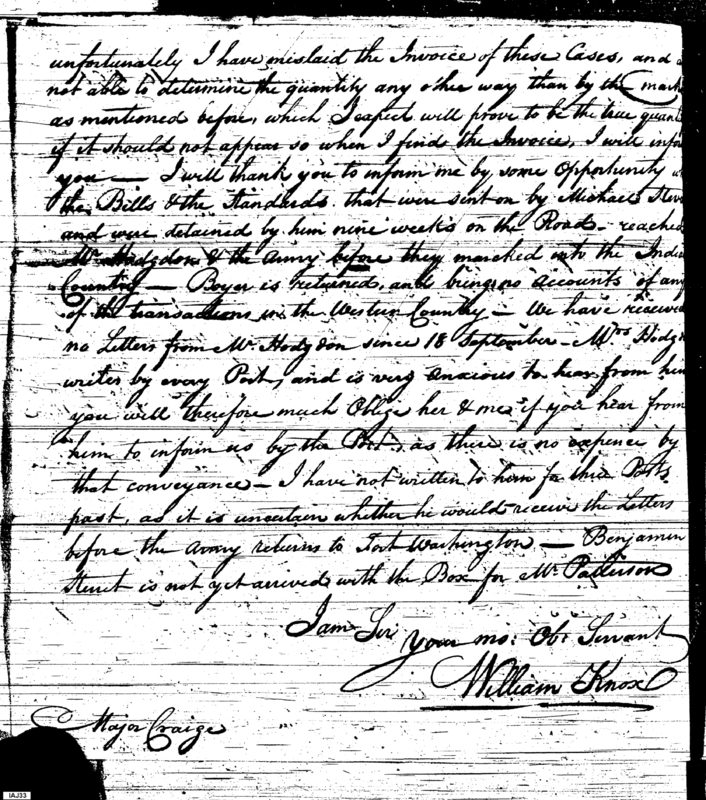 unfortunately I have mislaid the Invoice of these Cases, and a
not able to determine the quantity any other way than by the mark
as mentioned before, which I expect will prove to be the true quant
if it should not appear so when I find the Invoice, I will info
you — I will thank you to inform me by some Opportunity
the Bills & the Standards that were sent on by Michael Stev
and were detained by him nine weeks on the Road - reached
Mr Hodgdon & the Army before they marched into the Indi
Country — Boyer is returned, and brings no accounts of any
of the transactions in the Western Country — We have received
no Letters from Mr. Hodgdon since 18 September - Mrs Hodgd
writes by every Post, and is very anxious to hear from him
you will therefore much Oblige her & me if you hear from
him to inform us by the Post, as there is no expence by
that conveyance — I have not written to him for three Posts
past, as it is uncertain whether he would receive the Letters
before the Army returns to Fort Washington — Benjamin
Sterret is not yet arrived with the Box for Mr. Patterson
I am Sir
Your mo: Obt Servant
William Knox
Major Craige
IAJ33